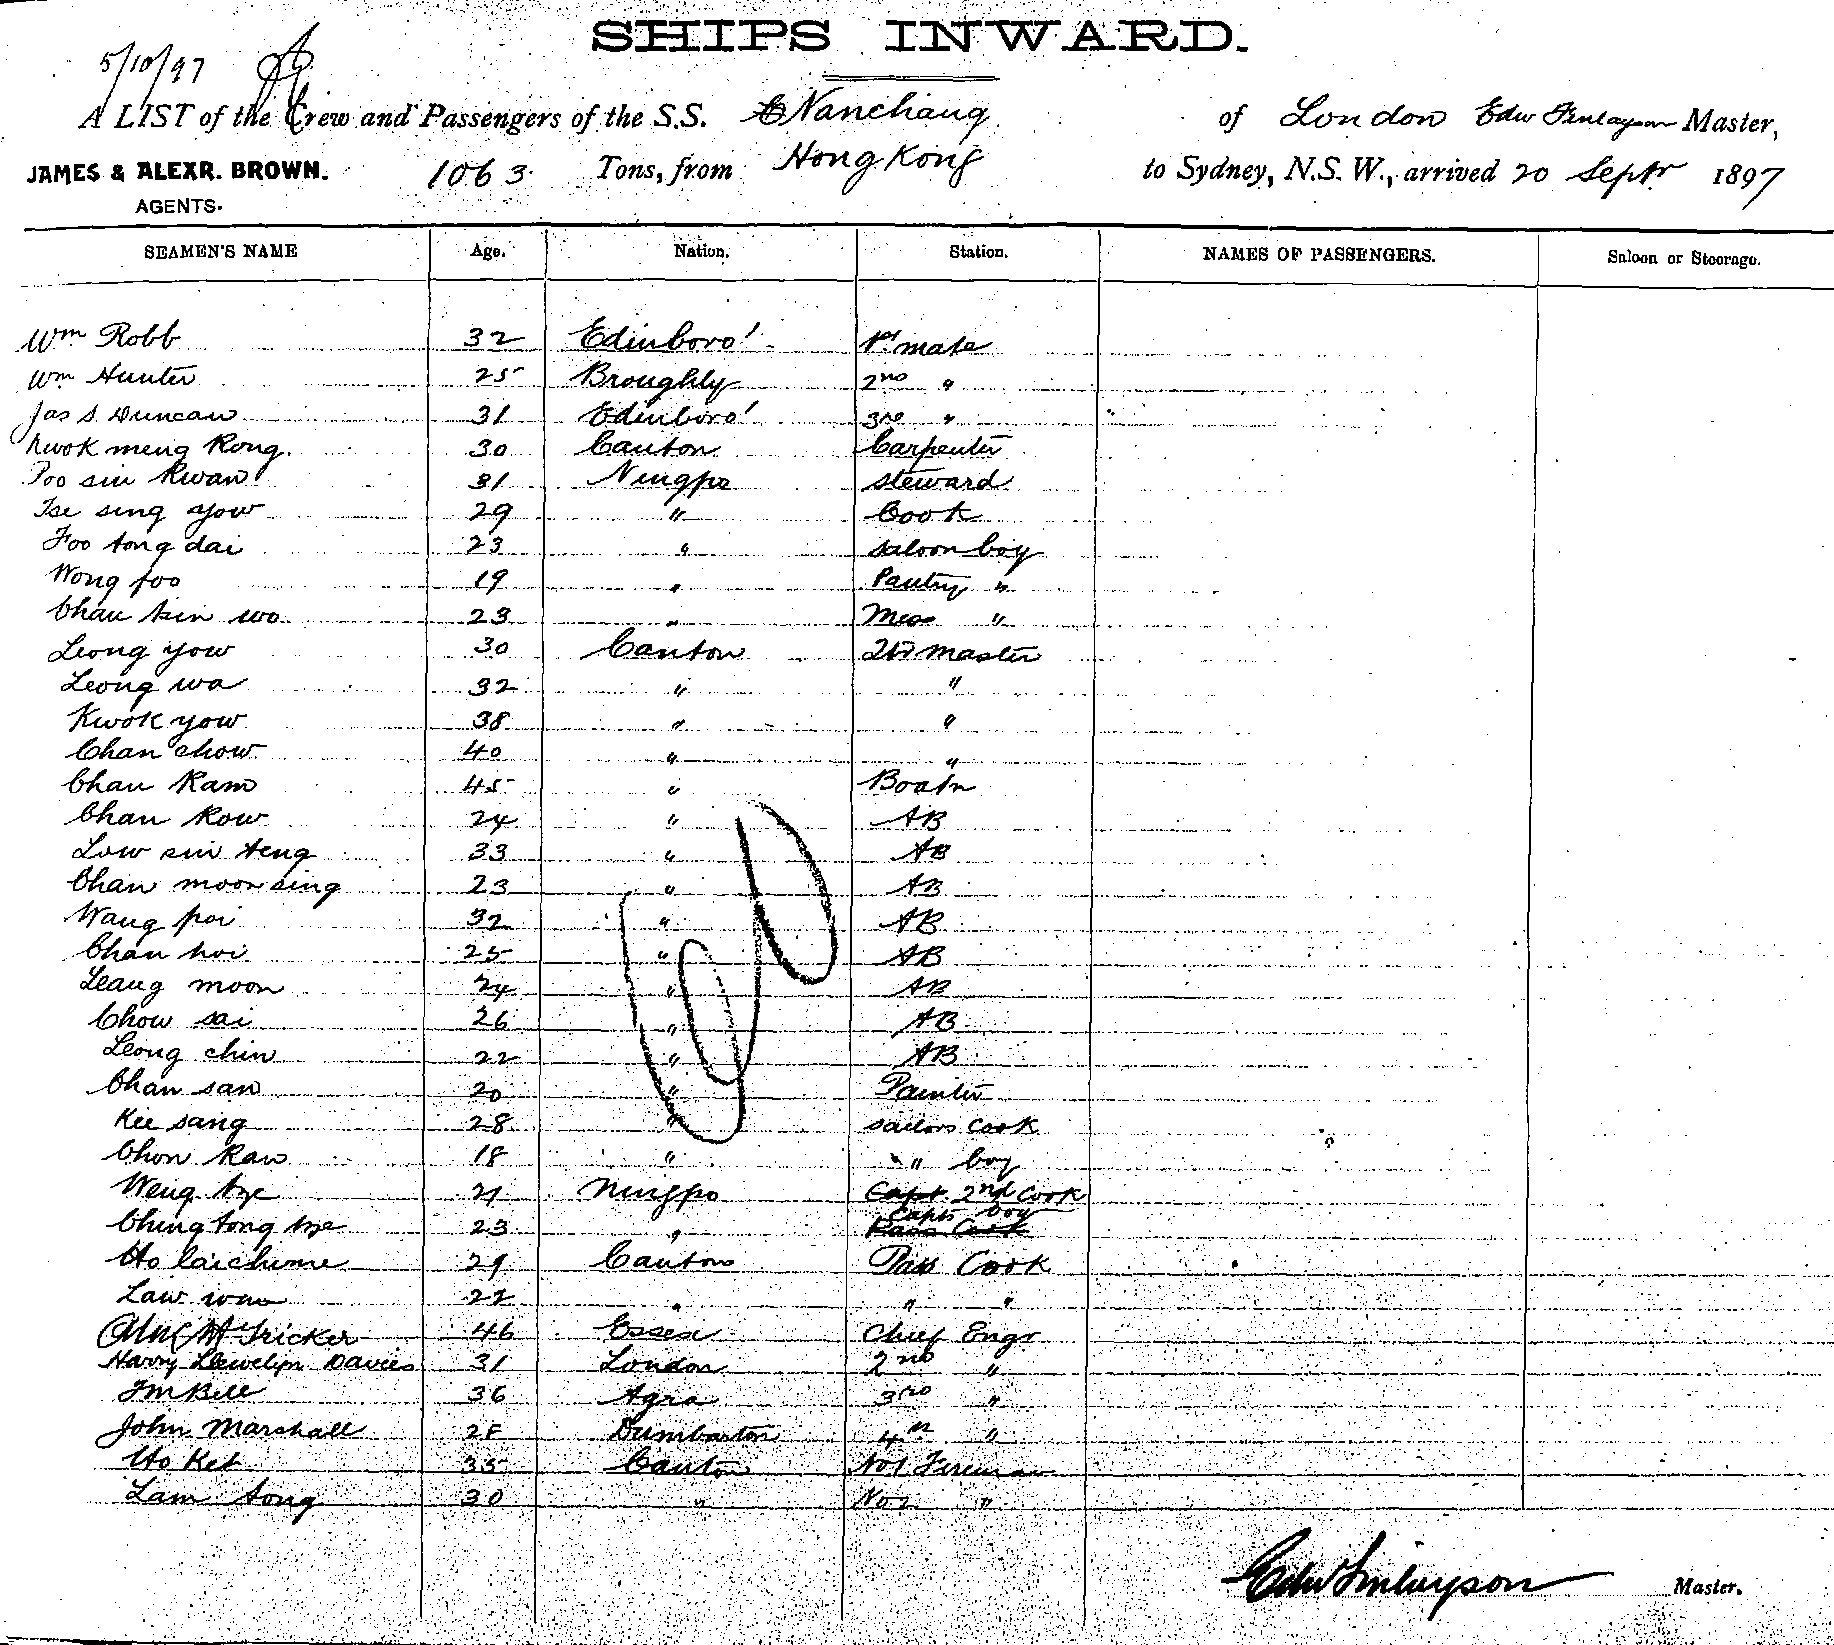 SHIPS INWARD.
5/10/97
A LIST of the Crew and Passengers of the S.S. Nanchang of London Edw Finlayson Master,
JAMES & ALEXR. BROWN. 1063 Tons, from Hong Kong to Sydney, N.S.W., arrived 20 Septr 1897
AGENTS.
SEAMEN'S NAME Age. Nation. Station. NAMES OF PASSENGERS. Saloon or Steerage.
Wm Robb 32 Edinboro' 1st mate
Wm Hunter 25 Broughly 2nd "
Jas S. Duncan 31 Edinboro' 3rd "
Kwok meng Kong. 30 Canton Carpenter
Poo sin Kwan 31 Ningpo steward
Tse sing yow 29 " Cook
Foo tong dai 23 " saloon boy
Wong foo 19 " Pantry "
Chan kin wo 23 " Mess "
Leong yow 30 Canton Qtr master
Leong wa 32 " "
Kwok yow 38 " "
Chan chow 40 " "
Chan Kam 45 " Boatn
Chan Kow 24 " AB
Low sin teng 33 " AB
Chan moon sing 23 " AB
Wang poi 32 " AB
Chan hoi 25 " AB
Leang moon 24 " AB
Chow sai 26 " AB
Leong chin 22 " AB
Chan san 20 " Painter
Kee sang 28 " sailors cook
Chon Kan 18 " " boy
Weng tze 21 Ningpo Capt 2nd Cook
Ching tong tze 23 " Capts boy Pass Cook
Ho 29 Canton Pass Cook
Law 22 " " "
Tricker 46 Essex Chief Engr
Harry Llewelyn Davies 31 London 2nd "
Bell 36 Agra 3rd "
John Marshall 28 Dumbarton 4th "
Ho Ket 35 Canton No1 Fireman
Lam tong 30 " No2 "
Edw Finlayson Master.